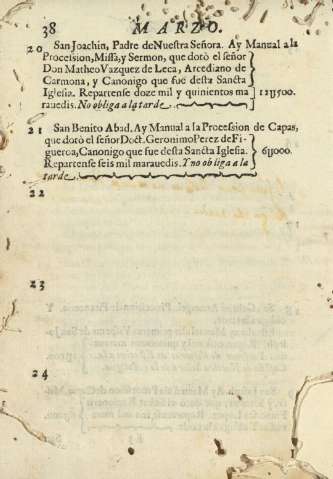 38 MARZO.
20 San Joachin, Padre de Nuestra Señora. Ay Manual a la
Procession, Missa, y Sermon, que dotò el señor
Don Matheo Vazquez de Leca, Arcediano de
Carmona, y Canonigo que fue desta Sancta
Iglesia. Repartense doze mil y quinientos ma
rauedis. No obliga a la tarde 12U500.
21 San Benito Abad. Ay Manual a la Procession de Capas,
que dotò el señor Doct. Geronimo Perez de Fi-
gueroa, Canonigo que fue desta Sancta Iglesia.
Repartense seis mil marauedis. Y no obliga a la
tarde 6U000.
22
23
24